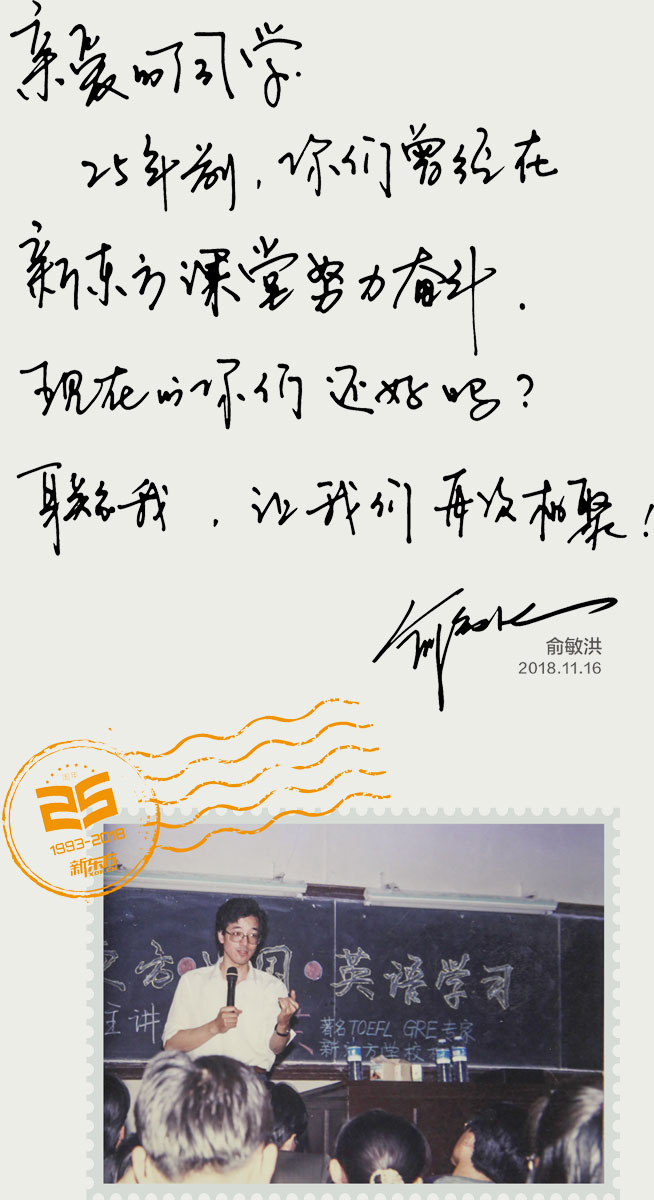 亲爱的同学.
25年前，你们曾经在
新东方课堂努力奋斗.
现在的你们还好吗？
联系我，让我们再次相聚！
俞敏洪
俞敏洪
2018.11.16
周年
25
1993-2018
新东方
英语学习
主讲
著名TOEFL GRE专家
新东方学校